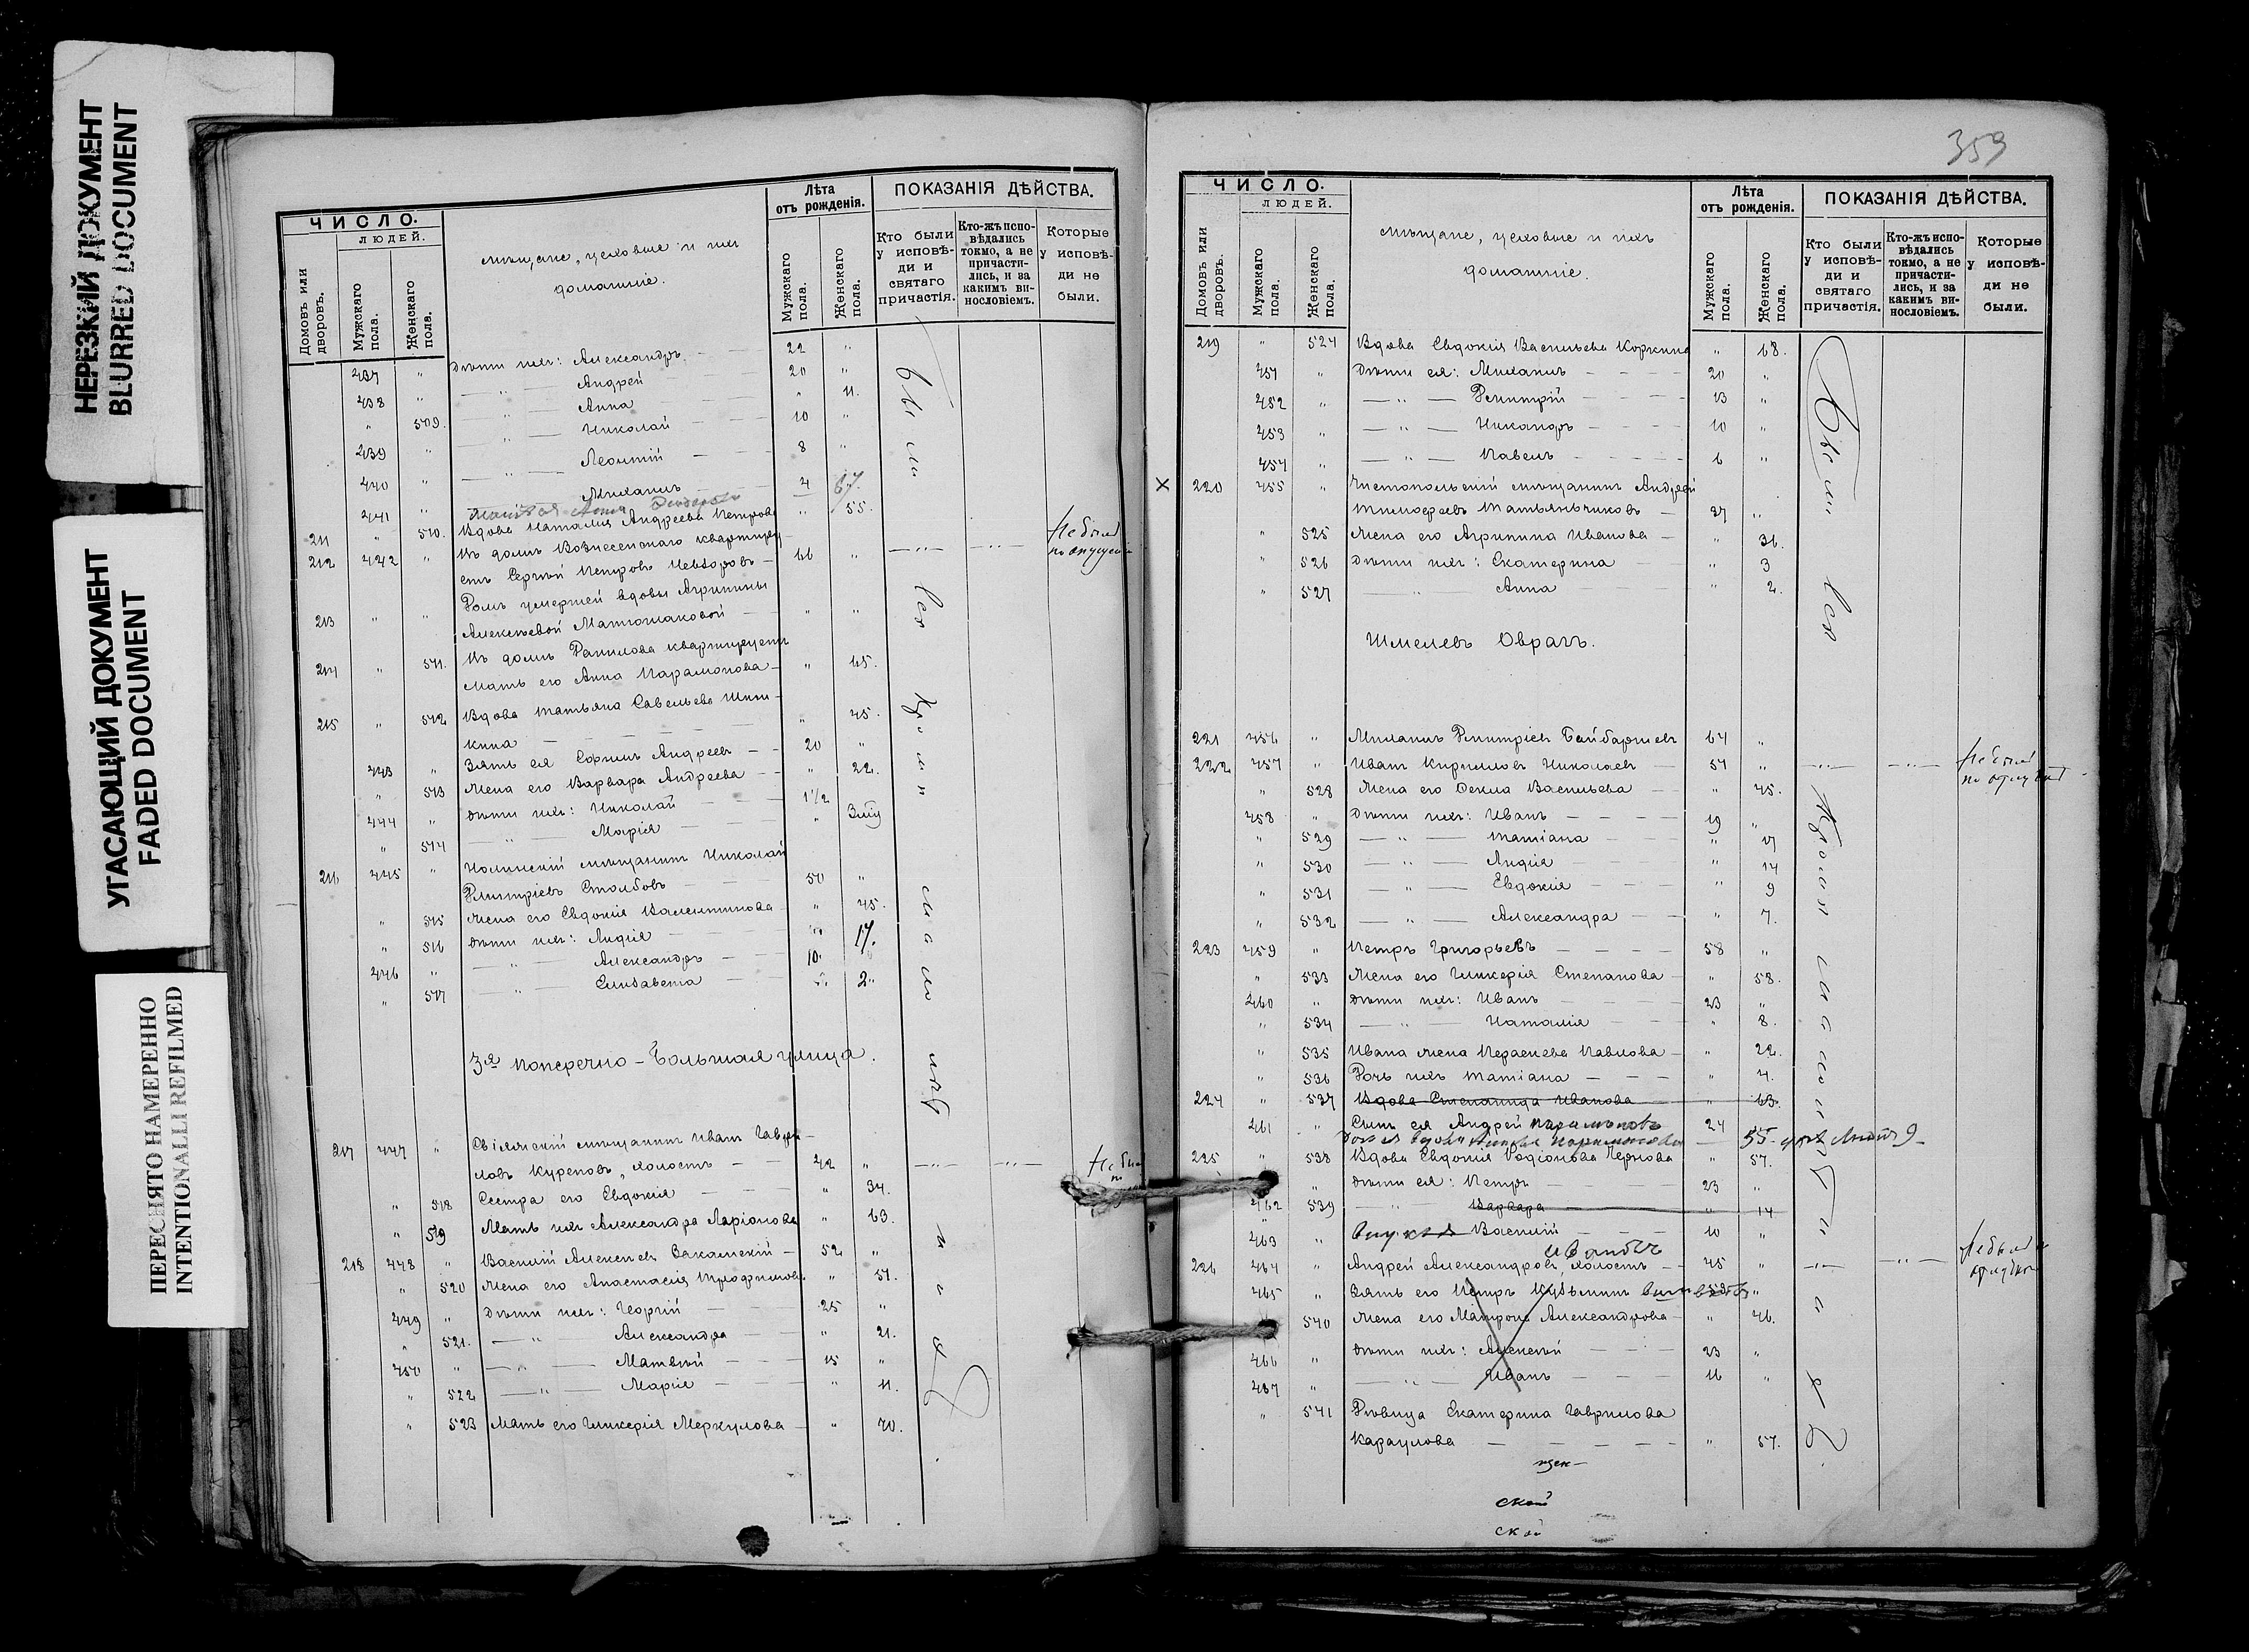 НЕРЕЗКИЙ ДОКУМЕНТ
BLURRED DOCUMENT
УГАСАЮЩИЙ ДОКУМЕНТ
FADED DOCUMENT
ПЕРЕСНЯТО НАМЕРЕННО
INTENTIONALLI REFILMED
ЧИСЛО.
ЛЮДЕЙ.
Домовъ или дворовъ.
Мужскаго пола.
Женскаго пола.
мѣщане, цеховые и ихъ
домашніе.
Лѣта
отъ рожденія.
Мужскаго пола.
Женскаго пола.
ПОКАЗАНІЯ ДѢЙСТВА.
Кто были у исповѣди и святаго причастія.
Кто-жъ исповѣдались токмо, а не причастились, и за какимъ винословіемъ.
Которые у исповѣди не были.
437 " Дѣти ихъ: Александръ 22 "
438 " " Андрей 20 "
" 509. " Анна " 11.
439 " " Николай 10 "
440 " " Леонтій 8 "
441 " Михаилъ 4
211 " 510. Вдова Наталія Андреева Петрова " 55.
212 442 " Въ домѣ Вознесенскаго квартиру-
етъ Сергѣй Петровъ 66 " Не былъ
по опущен
213 " " Домъ умершей вдовы Агрипины
Алексѣевой Матюшаковой " "
214 " 511. Въ домѣ Данилова квартируетъ
мать его Анна Парамонова " 65.
215 " 512 Вдова Татьяна Савельева Шиш-
кина " 45.
443 " Зять ея Ефимъ Андреевъ 20 "
" 513 Жена его Варвара Андреева " 22.
444 " Дѣти ихъ: Николай 1½
" 514 " Марія "
216 445 " Нолинскій мѣщанинъ Николай
Дмитріевъ Столбовъ 50 "
" 515 Жена его Евдокія Валентинова " 45.
" 516 Дѣти ихъ: Лидія " 17.
446 " " Александръ 10.
" 517 " Елисавета " 2"
3я поперечно-Большая улица.
217 447 " Свіяжскій мѣщанинъ Иванъ Гаври-
ловъ Куреповъ, холостъ 42 " Не был
" 518 Сестра его Евдокія " 34.
" 519 Мать ихъ Александра Ларіонова " 63.
218 448 " Василій Алексѣевъ Закамскій 52 "
" 520 Жена его Анастасія " 51.
449 " Дѣти ихъ: Георгій 25 "
" 521. " Александра " 21.
450 " " Матвѣй 15 "
" 522 " Марія " 11.
" 523 Мать его Гликерія Меркулова " 70.
359
ЧИСЛО.
ЛЮДЕЙ.
Домовъ или дворовъ.
Мужскаго пола.
Женскаго пола.
мѣщане, цеховые и ихъ
домашніе.
Лѣта
отъ рожденія.
Мужскаго пола.
Женскаго пола.
ПОКАЗАНІЯ ДѢЙСТВА.
Кто были у исповѣди и святаго причастія.
Кто-жъ исповѣдались токмо, а не причастились, и за какимъ винословіемъ.
Которые у исповѣди не были.
219 " 524 Вдова Евдокія Васильева Коркина " 48.
451 " Дѣти ея: Михаилъ 20 "
452 " " Дмитрій 13 "
453 " " Никаноръ 10 "
454 " " Павелъ 6 "
× 220 455 " Чистопольскій мѣщанинъ Андрей
Тимоѳеевъ Татьянчиковъ 37 "
" 525 Жена его Агрипина Иванова " 31.
" 526 Дѣти ихъ: Екатерина " 3
" 527 " Анна " 2.
Шмелевъ Оврагъ.
221 456 " Михаилъ Дмитріевъ Байбарышевъ 64 "
222 457 " Иванъ Кирилловъ Николаевъ 51 " Не был
" 528 Жена его Ѳекла Васильева " 45.
458 " Дѣти ихъ: Иванъ 19 "
" 529 " Татіана " 17
" 530 " Лидія " 14
" 531 " Евдокія " 9
" 532 " Александра " 7.
223 459 " Петръ Григорьевъ 58 "
" 533 Жена его Гликерія Степанова " 58.
460 " Дѣти ихъ: Иванъ 23 "
" 534 " Наталія " 8.
" 535 Ивана жена Параскева Павлова " 22.
" 536 Дочь ихъ Татіана " 4.
224 " 537 Вдова Степанида Иванова " 63.
461 " Сынъ ея Андрей Парамоновъ 24
225 " 538 Вдова Евдокія Родіонова Чернова " 57.
462 " Дѣти ея: Петръ 23 "
" 539 " Варвара " 14
463 " внукъ Василій 10 "
Ивановъ
226 464 " Андрей Александровъ, холостъ 45 " Не был
465 " Зять его Петръ Кузьминъ "
540 Жена его Матрона Александрова " 46.
466 " Дѣти ихъ: Алексѣй 23 "
467 " " Иванъ 16 "
" 541 Дѣвица Екатерина Гаврилова
Караулова " 57.
ской
ской